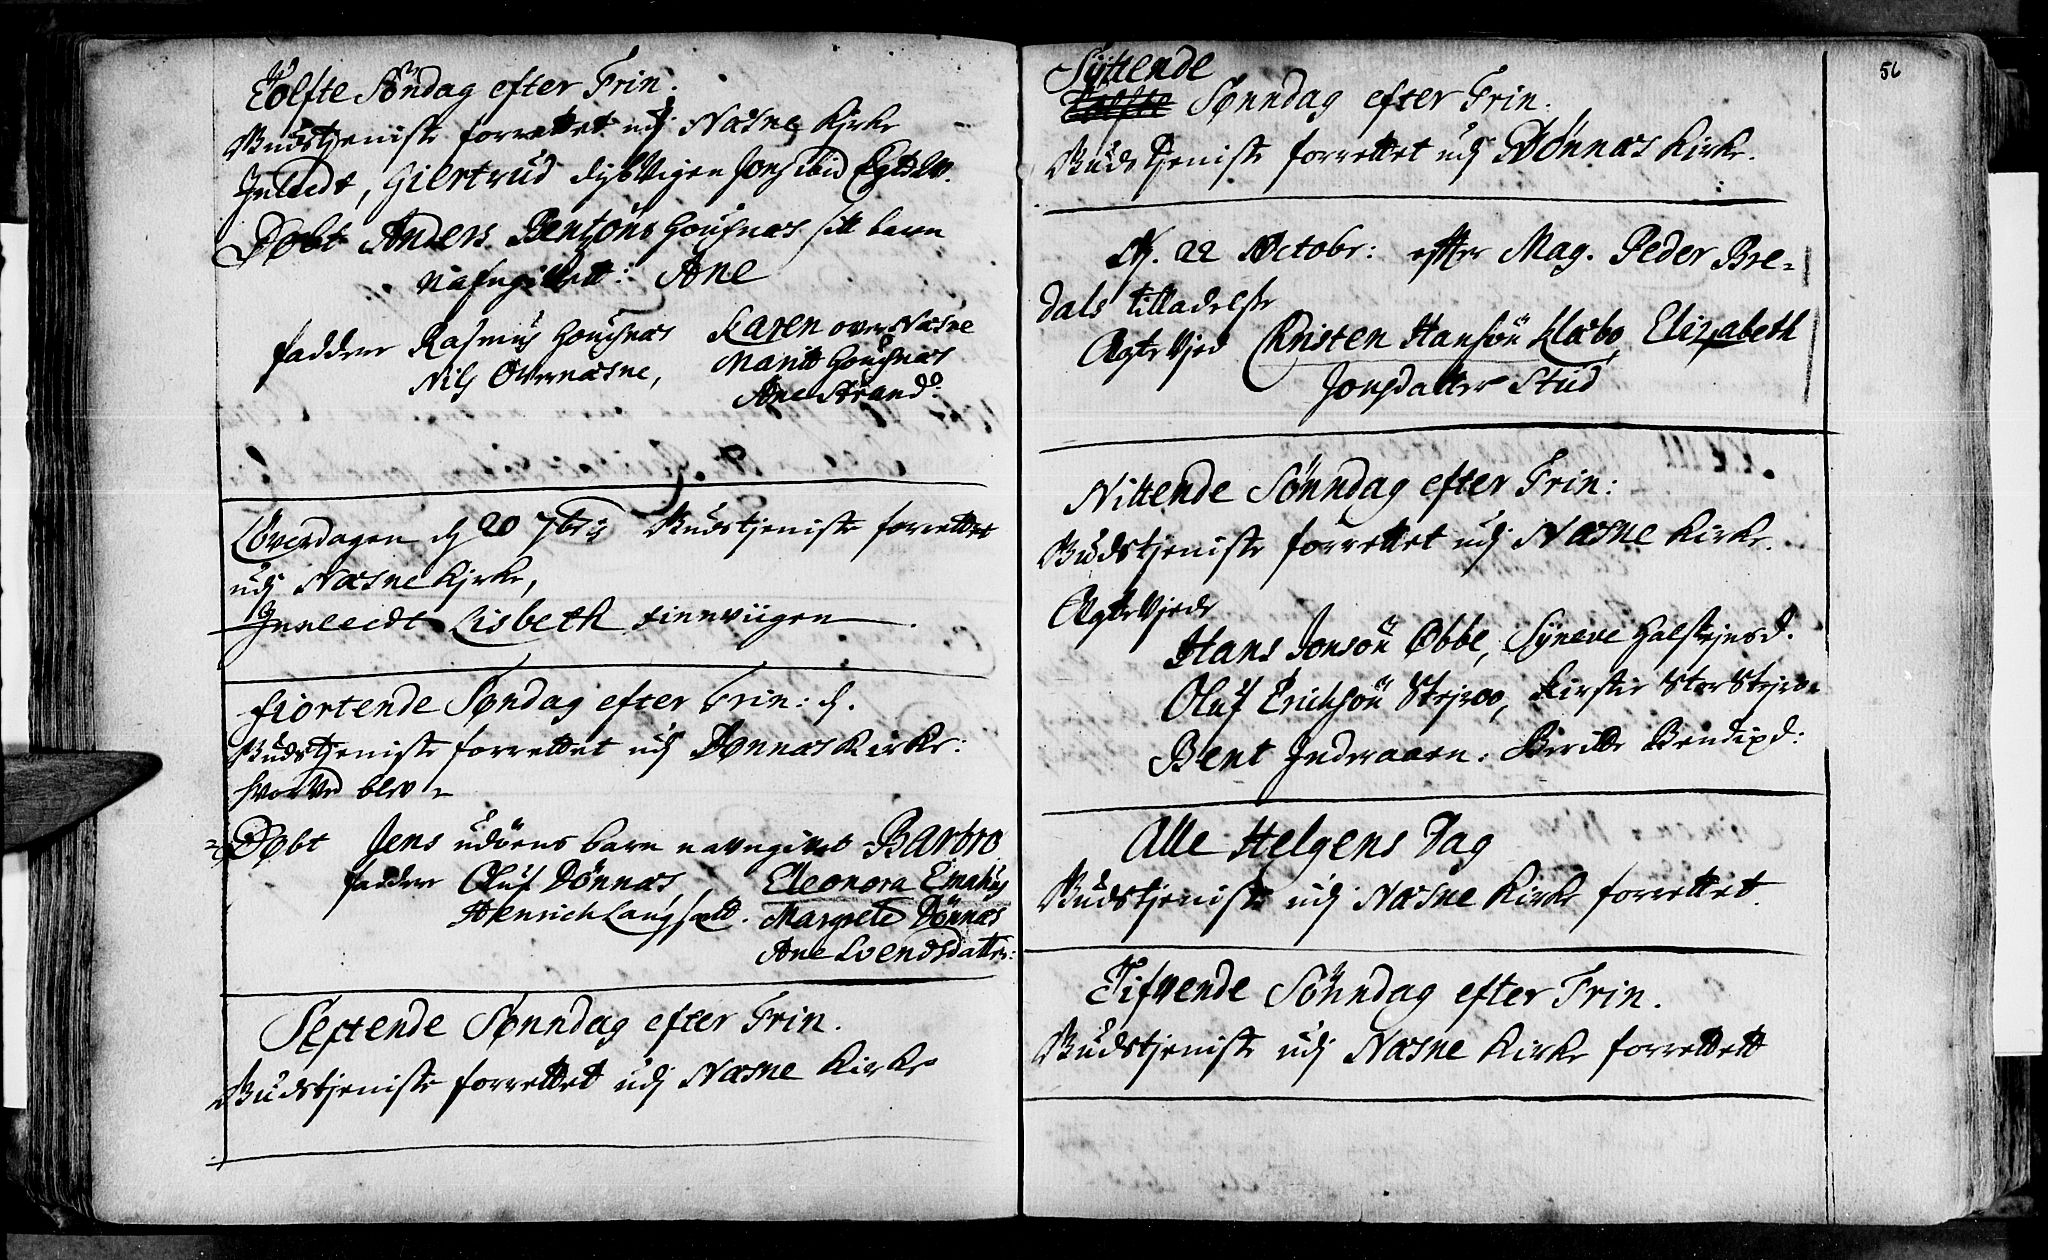 Tolfte Søndag efter Trin.
Gudstjeniste forrettet udj Næsne Kirke
Inleedt, Giertrud Jons ibid
Døbt Anders Bentsöns Housnæs sitt barn
nafngifvett: Ane
faddere Rasmus Housnæs Karen over Næsne
Nils Overnæsne, Maritt Housnæs
Ane Strand
Løverdagen d 20 7bris Gudstjeniste forrettet
udj Næsne Kirke,
Innleedt Lisbeth Finnviigen
fiortende Søndag efter Trin: d.
Gudstjeniste forrettet udj Dønnæs Kirke:
hvorved blev
Døbt Jens udöens barn navngivet Barbro
faddere Oluf Dönnæs, Eleonora Emahus
Henrich Langsett. Margrete Dönnæs
Ane Svendsdatter:
Sextende Sønndag efter Trin.
Gudstjeniste forrettet udj Næsne Kirke
56
Syttende
Tolfte Sønndag efter Trin.
Guds Tjeniste forrettet udj Dönnæs Kirke.
D. 22 Octobr: efter Mag. Peder Bre-
dals tilladelse
Ægte Vjed Christen Hansön Klæbo, Elizabeth
Jonsdatter Stud
Nittende Sönndag efter Trin:
Gudstjeniste forrettet udj Næsne Kirke.
Ægte Vjede
Hans Jonsön Ebbe, Syneve Halstejnsd.
Oluf Erichsön Stejroe, Kirstie Stor Stejro
Bent Inderaaen: Beritte Bendixd:
Alle Helgens Dag
Gudstjeniste udj Næsne Kirke forrettet.
Tifvende Sönndag efter Trin.
Gudstjeniste udj Næsne Kirke forrettett